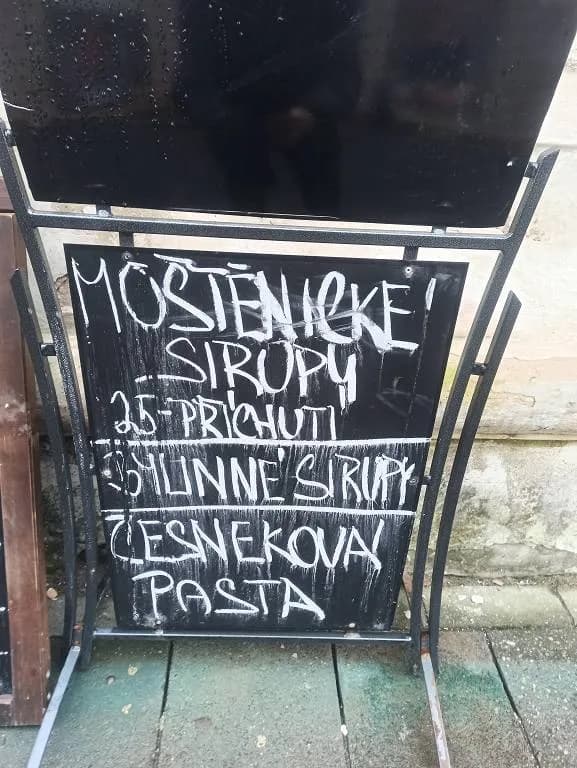 MOŠTĚNICKÉ
SIRUPY
25-PŘÍCHUTÍ
BYLINNÉ SIRUPY
ČESNEKOVÁ
PASTA